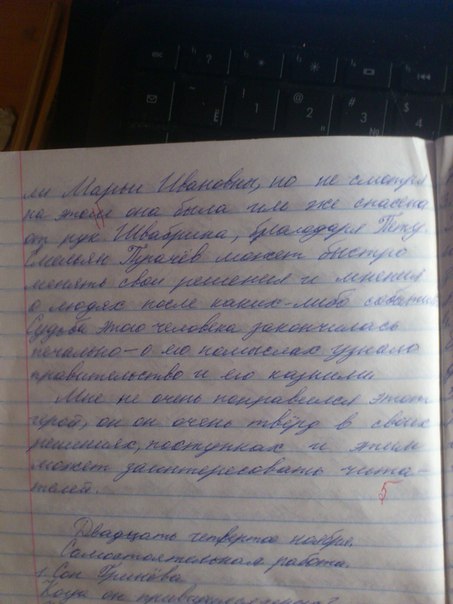 ли Марьи Ивановны, но не смотря
на этом она была им же спасена
от рук Швабрина, благодаря Петру.
Емельян Пугачёв может быстро
менять свои решения и мнения
о людях после каких-либо событий
Судьба этого человека закончилась
печально - о его помыслах узнало
правительство и его казнили.
Мне не очень понравился этот
герой, он он очень твёрд в своих
решениях, поступках и этим
может заинтересовать чита-
телей.
5
Двадцать четвертое ноября.
Самостоятельная работа.
1. Сон Гринёва